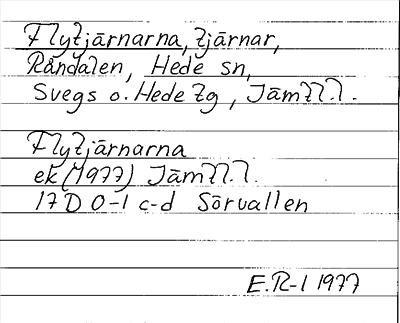 Flytjärnarna, tjärnar,
Råndalen, Hede sn,
Svegs o. Hede tg, Jämtl.l.
Flytjärnarna
ek (1977) Jämtl.l.
17D 0-1 c-d Sörvallen
E.R-l 1977